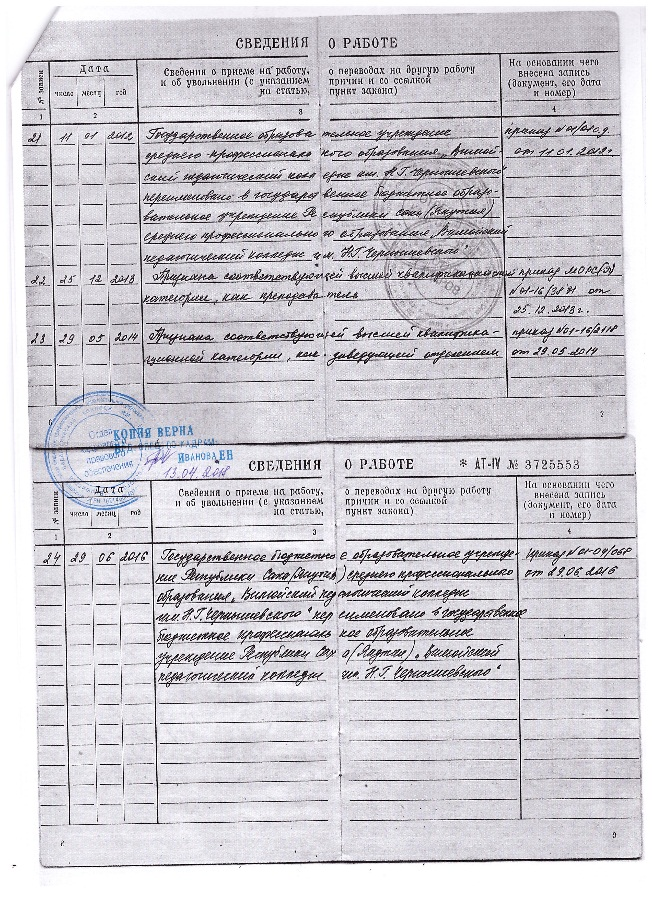 СВЕДЕНИЯ О РАБОТЕ
№ записи
Дата
число месяц год
Сведения о приеме на работу, о переводах на другую работу
и об увольнении (с указанием причин и со ссылкой
на статью, пункт закона)
На основании чего
внесена запись
(документ, его дата
и номер)
1 2 3 4
21 11 01 2012 Государственное образовательное учреждение приказ №01/01 о.д.
среднего профессионального образования „Вилюй- от 11.01.2012г
ский педагогический колледж им. Н.Г. Чернышевского"
переименовано в государственное бюджетное образо-
вательное учреждение Республики Саха (Якутия)
среднего профессионального образования „Вилюйский
педагогический колледж им. Н.Г. Чернышевского"
22 25 12 2013 Признана соответствующей высшей квалификационной приказ МО РС(Я)
категории, как преподаватель №01-16/3871 от
25.12.2013г.
23 29 05 2014 Признана соответствующей высшей квалифика- приказ №01-16/2118
ционной категории, как заведующей отделением от 29.05.2014
6 7
Отдел
правового
обеспечения
КОПИЯ ВЕРНА
ИВАНОВА ЕН
13.04.2018
СВЕДЕНИЯ О РАБОТЕ * АТ-IV № 3725553
№ записи
Дата
число месяц год
Сведения о приеме на работу, о переводах на другую работу
и об увольнении (с указанием причин и со ссылкой
на статью, пункт закона)
На основании чего
внесена запись
(документ, его дата
и номер)
1 2 3 4
24 29 06 2016 Государственное бюджетное образовательное учрежде- Приказ №01-04/067
ние Республики Саха (Якутия) среднего профессионального от 29.06.2016
образования „Вилюйский педагогический колледж
им. Н.Г. Чернышевского" переименовано в государственное
бюджетное профессиональное образовательное
учреждение Республики Саха (Якутия) „Вилюйский
педагогический колледж им. Н.Г. Чернышевского"
8 9